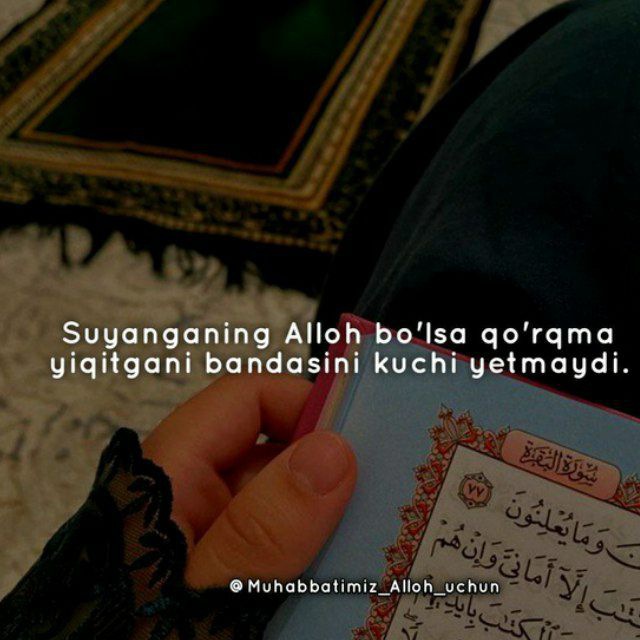 Suyanganing Alloh bo'lsa qo'rqma
yiqitgani bandasini kuchi yetmaydi.
سُورَةُ البَقَرَةِ
٧٧ وَمَا يُعْلِنُونَ
إِلَّآ أَمَانِىَّ وَإِنْ هُمْ
@Muhabbatimiz_Alloh_uchun